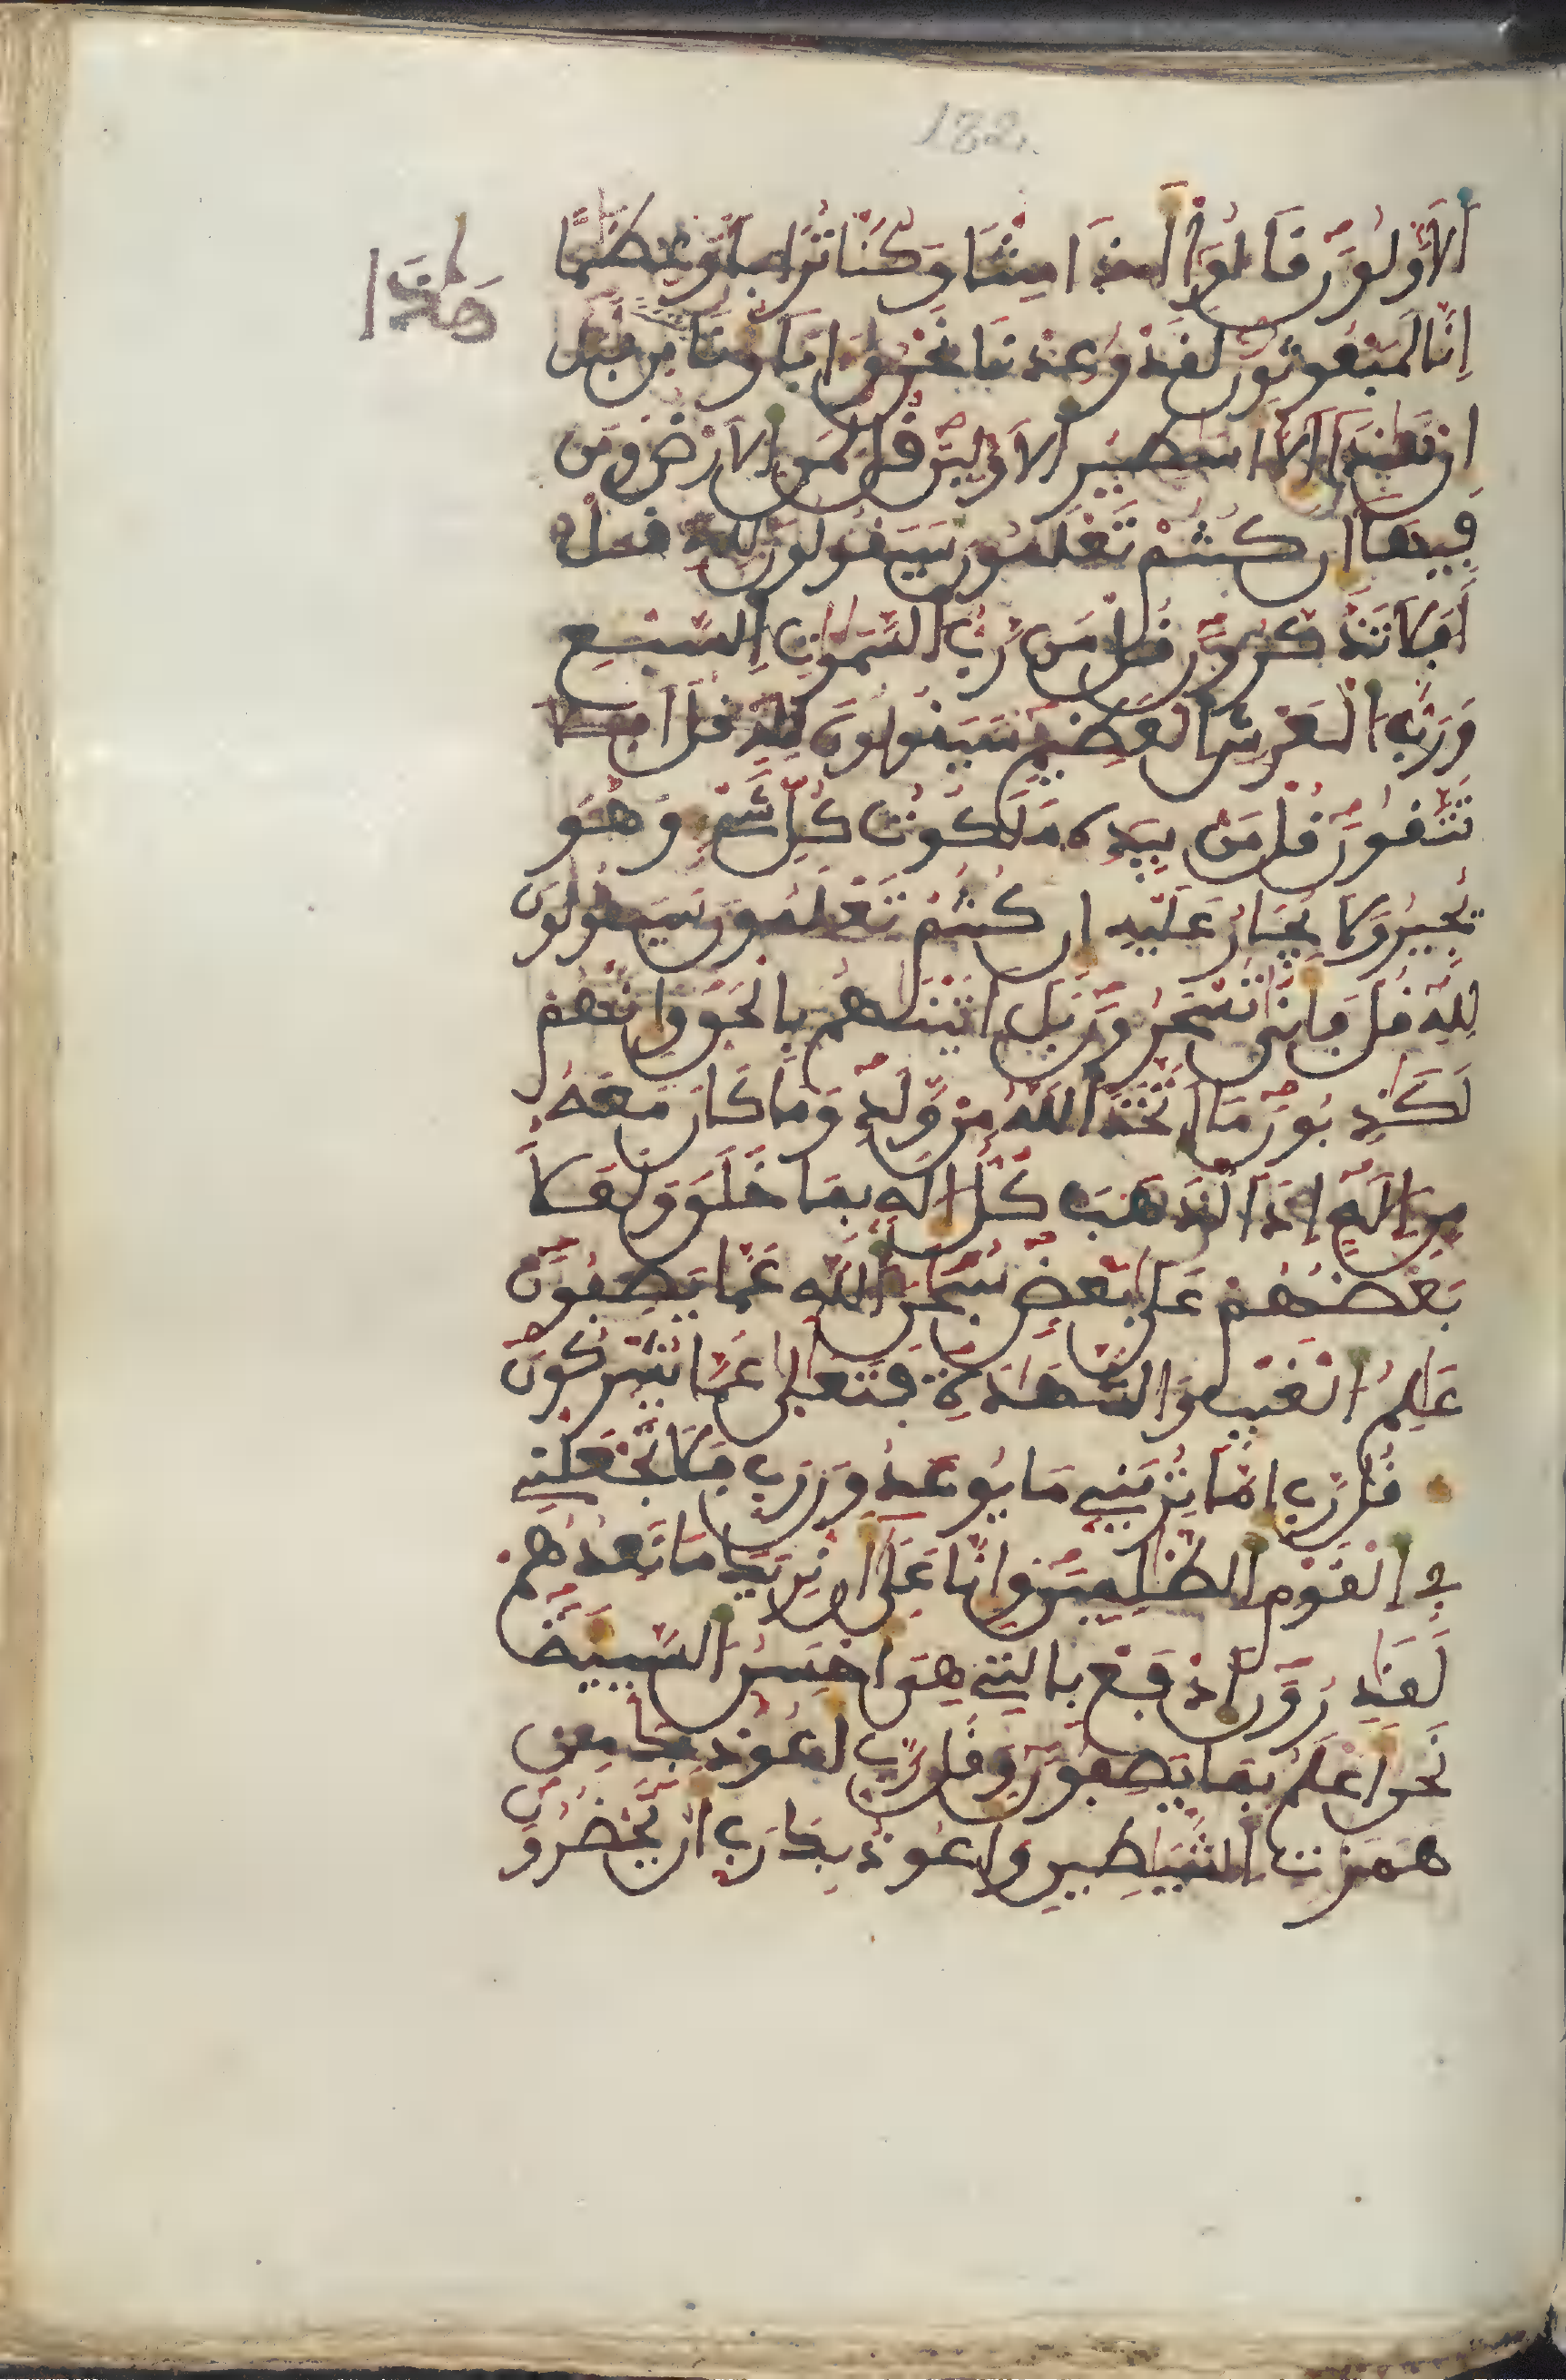 182
الاَوَّلُونَ قَالُوٓاْ أَ۟ذَا مِتْنَا وَكُنَّا تُرَاباً وَعِظَٰماً
اِنَّا لَمَبْعُوثُونَ لَقَدْ وُعِدْنَا نَحْنُ وَءَابَآؤُنَا مِن قَبْلُ
هَٰذَا
اِنْ هَٰذَآ إِلَّآ أَسَٰطِيرُ الاَوَّلِينَ قُل لِّمَنِ الاَرْضُ وَمَن
فِيهَآ إِن كُنتُمْ تَعْلَمُونَ سَيَقُولُونَ لِلهِ قُلَ
اَفَلَا تَذَّكَّرُونَ قُلْ مَن رَّبُّ السَّمَٰوَٰتِ السَّبْعِ
وَرَبُّ الْعَرْشِ الْعَظِيمِ سَيَقُولُونَ لِلهِ قُلَ اَفَلَا
تَتَّقُونَ قُلْ مَنۢ بِيَدِهِ مَلَكُوتُ كُلِّ شَيْءٍ وَهُوَ
يُجِيرُ وَلَا يُجَارُ عَلَيْهِ إِن كُنتُمْ تَعْلَمُونَ سَيَقُولُونَ
لِلهِ قُلْ فَأَنّٰي تُسْحَرُونَ بَلَ اَتَيْنَٰهُم بِالْحَقِّ وَإِنَّهُمْ
لَكَٰذِبُونَ مَا اَتَّخَذَ اَللَّهُ مِنْ وَّلَدٍ وَمَا كَانَ مَعَهُۥ
مِنِ اِلَٰهٍ إِذاً لَّذَهَبَ كُلُّ إِلَٰهِۢ بِمَا خَلَقَ وَلَعَلَا
بَعْضُهُمْ عَلَىٰ بَعْضٍ سُبْحَٰنَ اَللَّهِ عَمَّا يَصِفُونَ
عَٰلِمُ الْغَيْبِ وَالشَّهَٰدَةِ فَتَعَٰلَىٰ عَمَّا يُشْرِكُونَ
قُل رَّبِّ إِمَّا تُرِيَنِّي مَا يُوعَدُونَ رَبِّ فَلَا تَجْعَلْنِي
فِي اِلْقَوْمِ الظَّٰلِمِينَ وَإِنَّا عَلَىٰٓ أَن نُّرِيَكَ مَا نَعِدُهُمْ
لَقَٰدِرُونَ اَدْفَعْ بِالتِي هِيَ أَحْسَنُ السَّيِّئَةَ
نَحْنُ أَعْلَمُ بِمَا يَصِفُونَ وَقُل رَّبِّ أَعُوذُ بِكَ مِنْ
هَمَزَٰتِ الشَّيَٰطِينِ وَأَعُوذُ بِكَ رَبِّ أَنْ يَّحْضُرُونِ